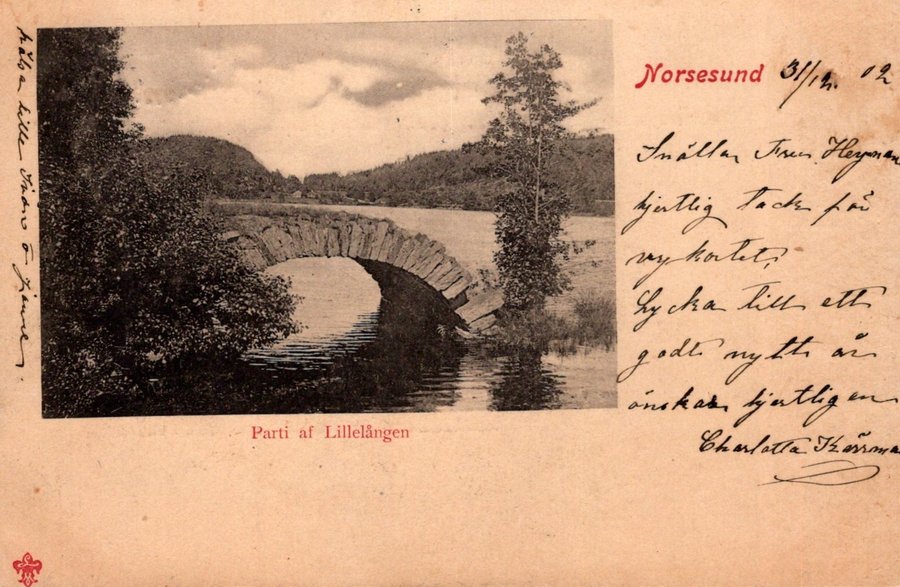 Norsesund 31/12. 02
Snälla Fru Heyman
hjertlig tack för
vykortet,
Lycka till ett
godt nytt år
önskar hjertligen
Charlotta Kärrma
hälsa lille
Parti af Lillelången